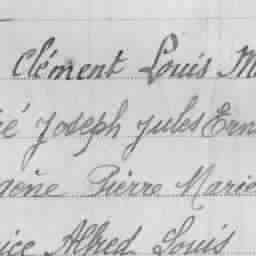 Clément Louis M
é Joseph Jules Ern
Pierre Marie
ice Alfred Louis